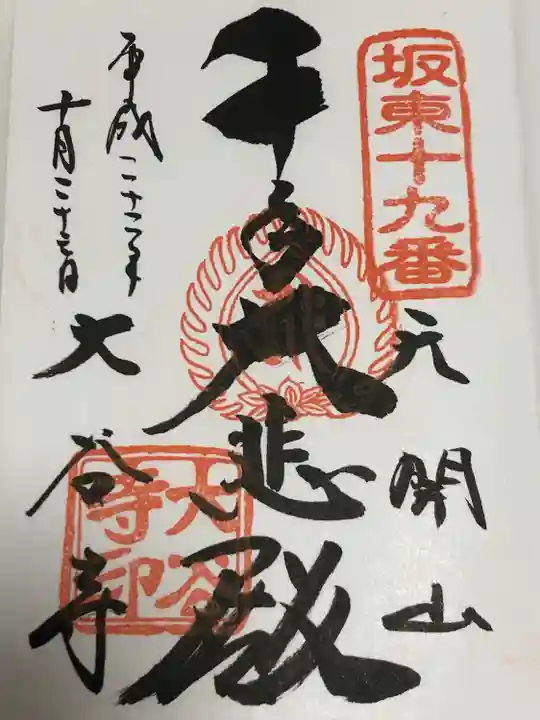 坂東十九番
元開山
千手大悲殿
平成二十二年
十月二十七日
大谷寺
大谷寺印